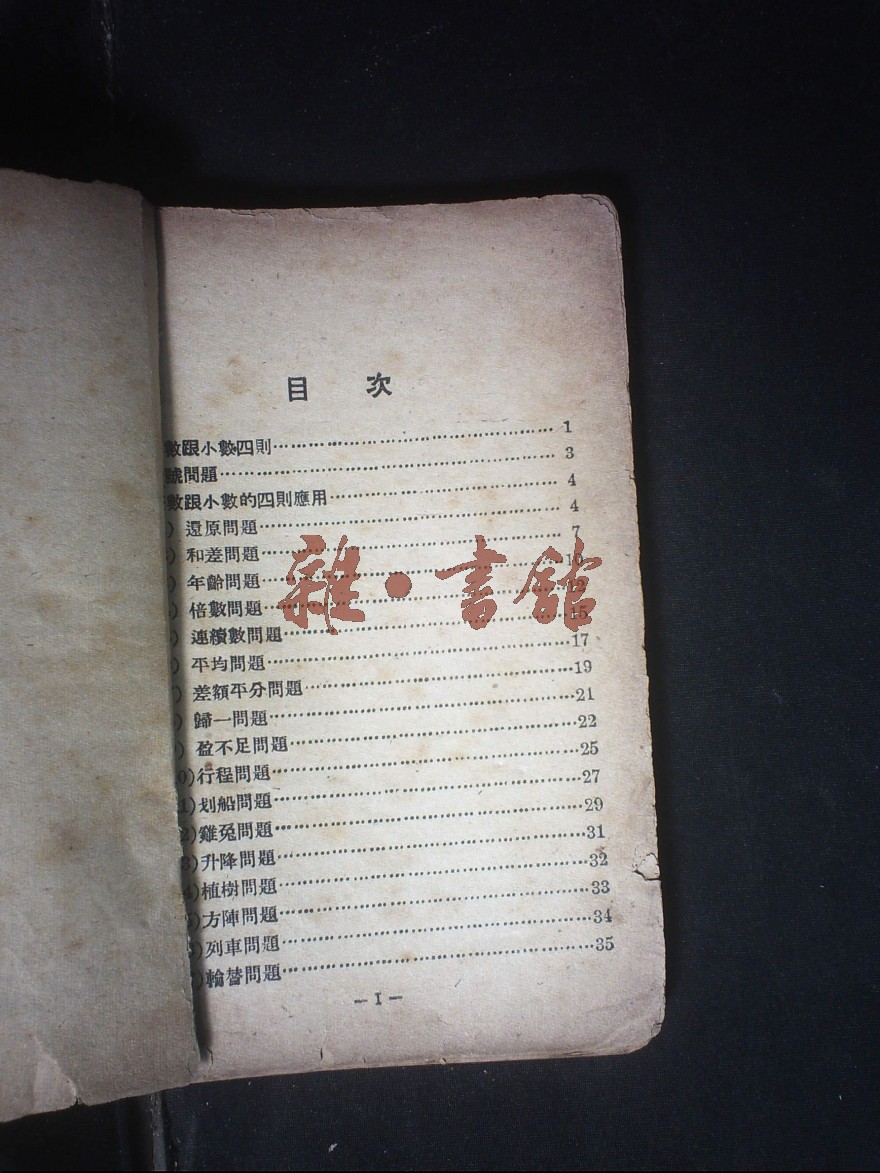 目 次
數跟小數四則……………………………………1
號問題……………………………………3
數跟小數的四則應用……………………………………4
) 還原問題……………………………………4
) 和差問題……………………………………7
) 年齡問題……………………………………10
) 倍數問題……………………………………12
) 連續數問題……………………………………15
) 平均問題……………………………………17
) 差額平分問題……………………………………19
) 歸一問題……………………………………21
) 盈不足問題……………………………………22
0)行程問題……………………………………25
1)划船問題……………………………………27
2)雞兔問題……………………………………29
3)升降問題……………………………………31
4)植樹問題……………………………………32
5)方陣問題……………………………………33
6)列車問題……………………………………34
7)輪替問題……………………………………35
—I—
雜·書館